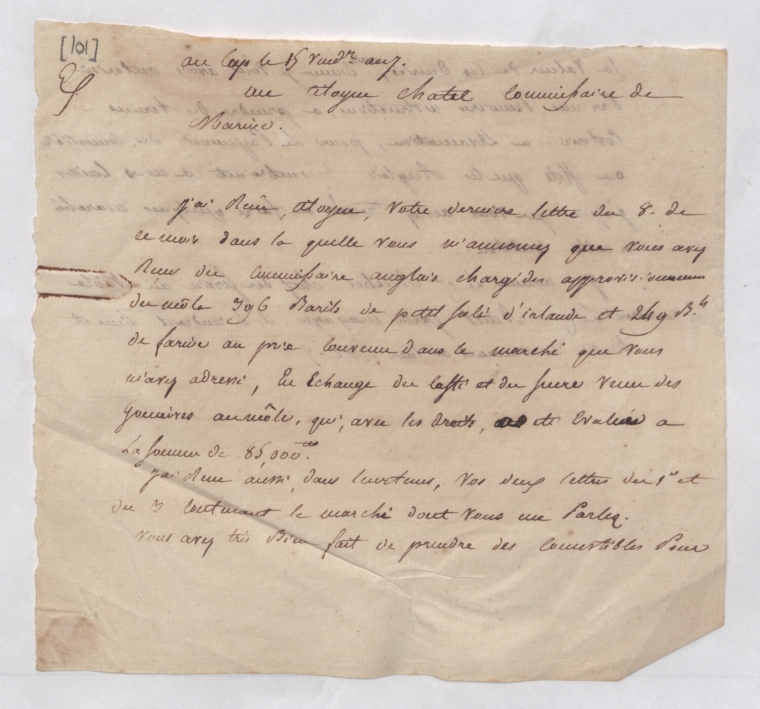 [101]
au Cap le 15 Vendre an 7.
au citoyen Chatel Commissaire de
Marine.
j'ai Reçu, citoyen, Votre derniere lettre du 8. de
ce mois dans la quelle Vous m'annoncez que vous avez
Reçu du Commissaire anglais chargé des approvisionnemens
du môle 396 Barils de petit salé d'irlande et 249 B.ls
de farine au prix Convenu dans le marché que Vous
m'avez adressé, En Echange du Caffé et du sucre Venu des
Gonaives au môle, qui, avec les droits, été Evalués a
La somme de 85,000.
j'ai Reçu aussi, dans le tems, Vos deux lettres du 1er et
du 3 Contenant le marché dont Vous me Parlez.
Vous avez très Bien fait de prendre des Comestibles Pour